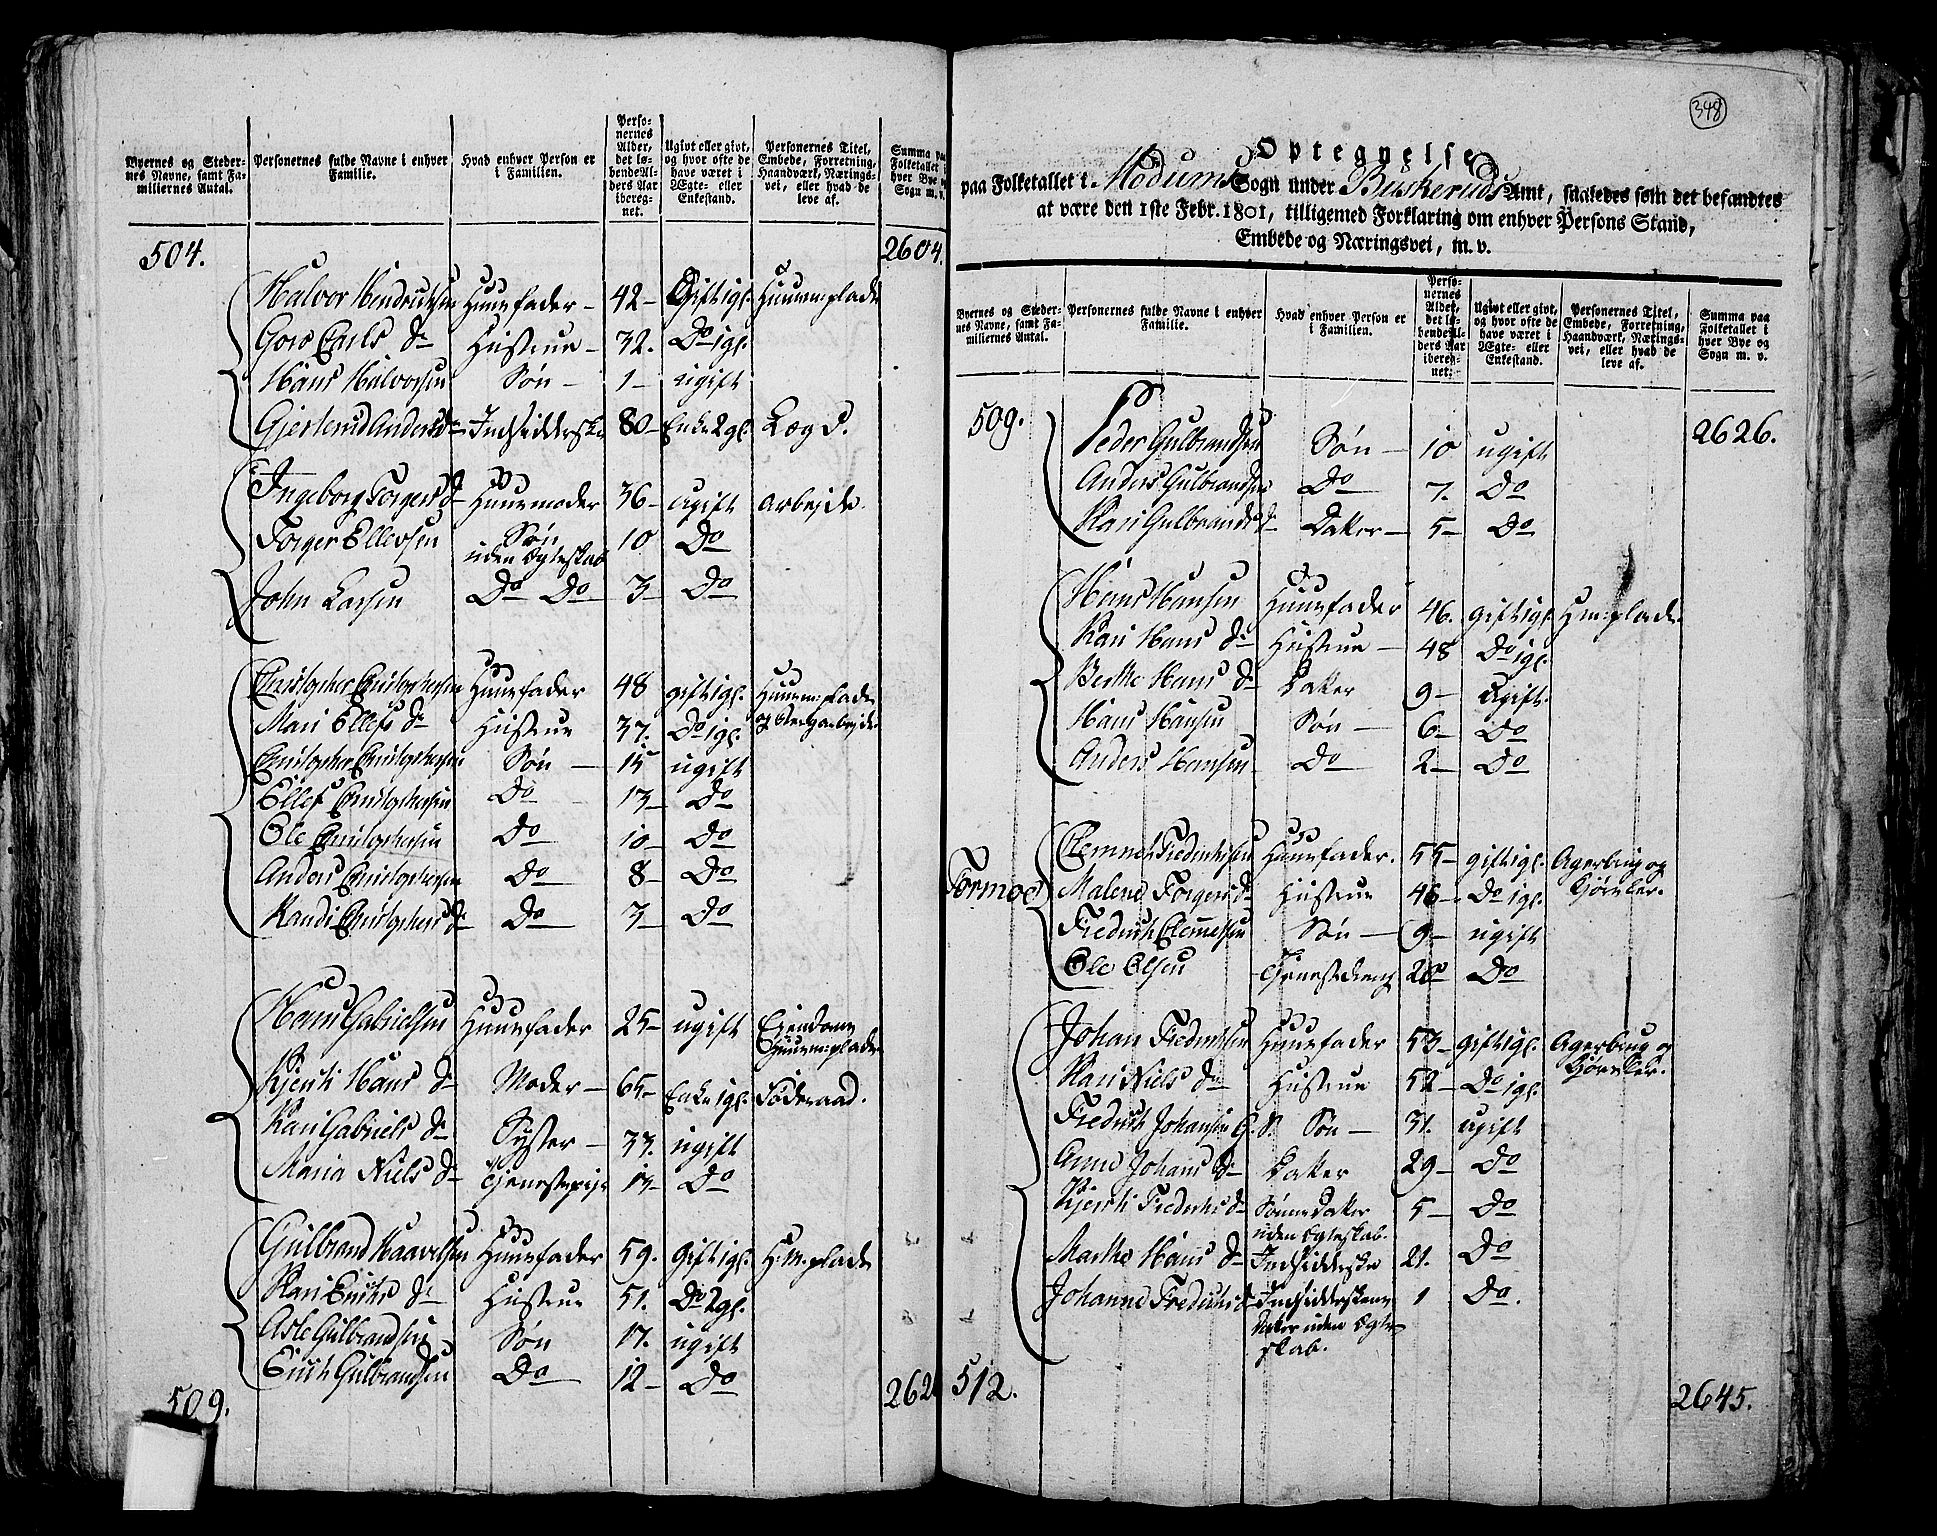 Byernes og Steder-
nes Navne, samt Fa-
miliernes Antal.
Personernes fulde Navne i enhver
Familie.
Hvad enhver Person er
i Familien.
Perso-
nernes
Alder,
det lø-
bende Al-
ders Aar
ibereg-
net.
Ugivt eller givt,
og hvor ofte de
have været i
Ægte- eller
Enkestand.
Personernes Titel,
Embede, Forretning,
Haandværk, Nærings-
vei, eller hvad de
leve af.
Summa paa
Folketallet i
hver Bye og
Sogn m. v.
504. 2604.
Halvor Hendrichsen Huusfader – 42 – Gift 1gl. Huusm: plads
Goro Carls D. Hustrue – 32. Do 1gl.
Hans Halvorsen Søn – 1 – ugift
Gjertrud Anders D. Indsidderske 80 – Enke 2gl. Læg D.
Ingeborg Torgers D. Huusmoder 36 – ugift arbejde.
Torger Ellevsen Søn 10 Do
uden Egteskab
John Larsen Do Do 3 – Do
Christopher Christophersen Huusfader 48 gift 1gl. Huusm: plads
Mari Ellefs D. Hustrue 37. Do 1gl. og Bergarbejde
Christopher Christophersen Søn – 15 ugift
Ellef Christophersen Do 13 – Do
Ole Christophersen Do 10 – Do
Anders Christophersen Do 8 – Do
Randi Christophers D. Do 3 – Do
Hans Gabrielsen Huusfader 25 – ugift Ejendoms
Huusm: plads
Kjersti Hans D. Moder – 65 – Enke 1gl. Føderaad.
Kari Gabriels D. Syster – 33. ugift
Maria Niels D. Tjenestepige 13 – Do
Gulbrand Haavelsen Huusfader 59. Gift 1gl. H: M: plads
Kari Erichs D. Hustrue 51. Do 2gl.
Asle Gulbrandsen Søn 17. ugift
Erich Gulbrandsen Do 12 – Do
509. 262
348
Optegnelse
paa Folketallet i Modums Sogn under Buskeruds Amt, saaledes som det befandtes
at være den 1ste Febr. 1801, tilligemed Forklaring om enhver Persons Stand,
Embede og Næringsvei, m. v.
Byernes og Steder-
nes Navne, samt Fa-
miliernes Antal.
Personernes fulde Navne i enhver
Familie.
Hvad enhver Person er
i Familien.
Perso-
nernes
Alder,
det lø-
bende Al-
ders Aar
ibereg-
net.
Ugivt eller givt,
og hvor ofte de
have været i
Ægte- eller
Enkestand.
Personernes Titel,
Embede, Forretning,
Haandværk, Nærings-
vei, eller hvad de
leve af.
Summa paa
Folketallet i
hver Bye og
Sogn m. v.
509. 2626.
Peder Gulbrandsen Søn – 10 ugift
Anders Gulbrandsen Do 7. Do
Kari Gulbrands D. Datter – 5 – Do
Hans Hansen Huusfader 46. gift 1gl. H: m: plads
Kari Hans D. Hustrue – 48 Do 1gl.
Berthe Hans D. Datter 9 – Ugift.
Hans Hansen Søn – 6 – Do
Anders Hansen Do 2 – Do
Clemmet Fredrichsen Huusfader. 55 – gift 1gl. Agerbrug og
Formoe Malene Torgers D. Hustrue 46 – Do 1gl. Kjørsler.
Fredrich Clemmetsen Søn – 9 – ugift
Ole Olsen Tjenestedreng 20 Do
Johan Fredrichsen Huusfader 53 – gift 1gl. Agerbrug og
Kari Niels D. Hustrue 52 – Do 1gl. Kjørsler.
Fredrich Johansen G. S. Søn – 31. ugift
Anne Johans D. Datter 29 – Do
Kjersti Fredrichs D. Sønnedatter 5 – Do
uden Egteskab.
Marthe Hans D. Indsidderske 21. Do
Johanne Fredrichs D. Indsidderskens 1 Do.
Datter uden Egte-
skab.
512. 2645.